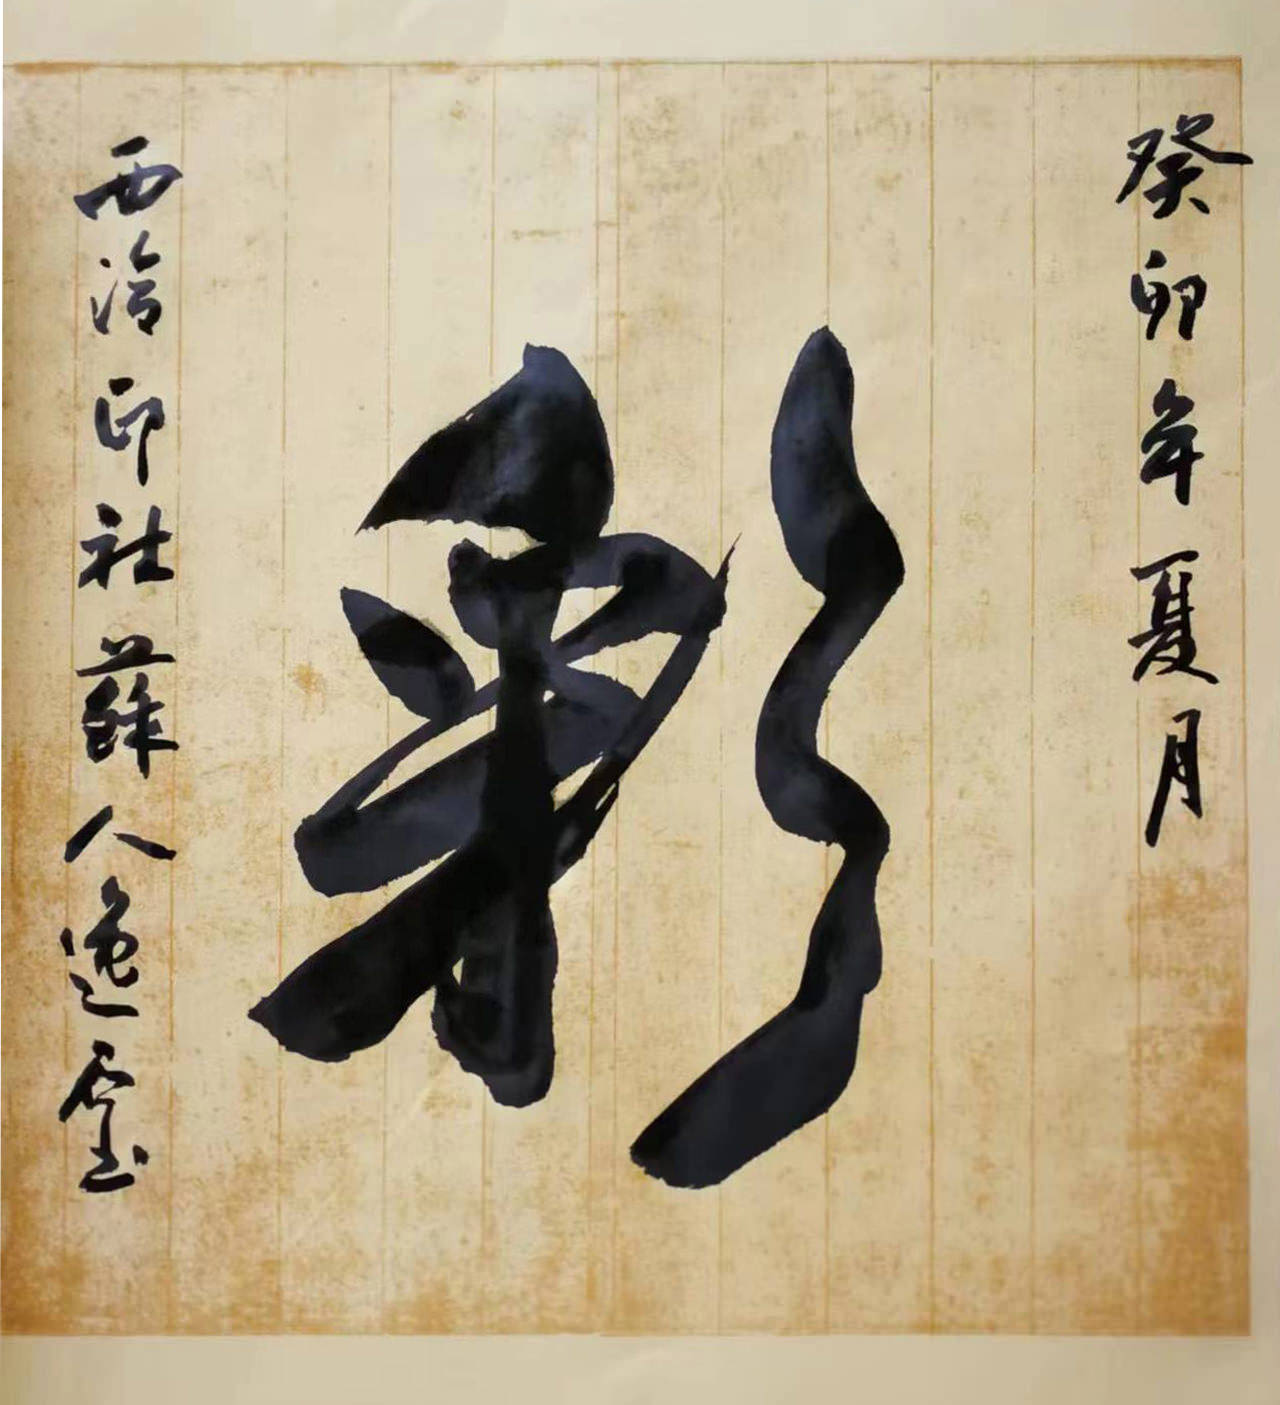 癸卯年夏月
彩
西泠印社薛人逸雲